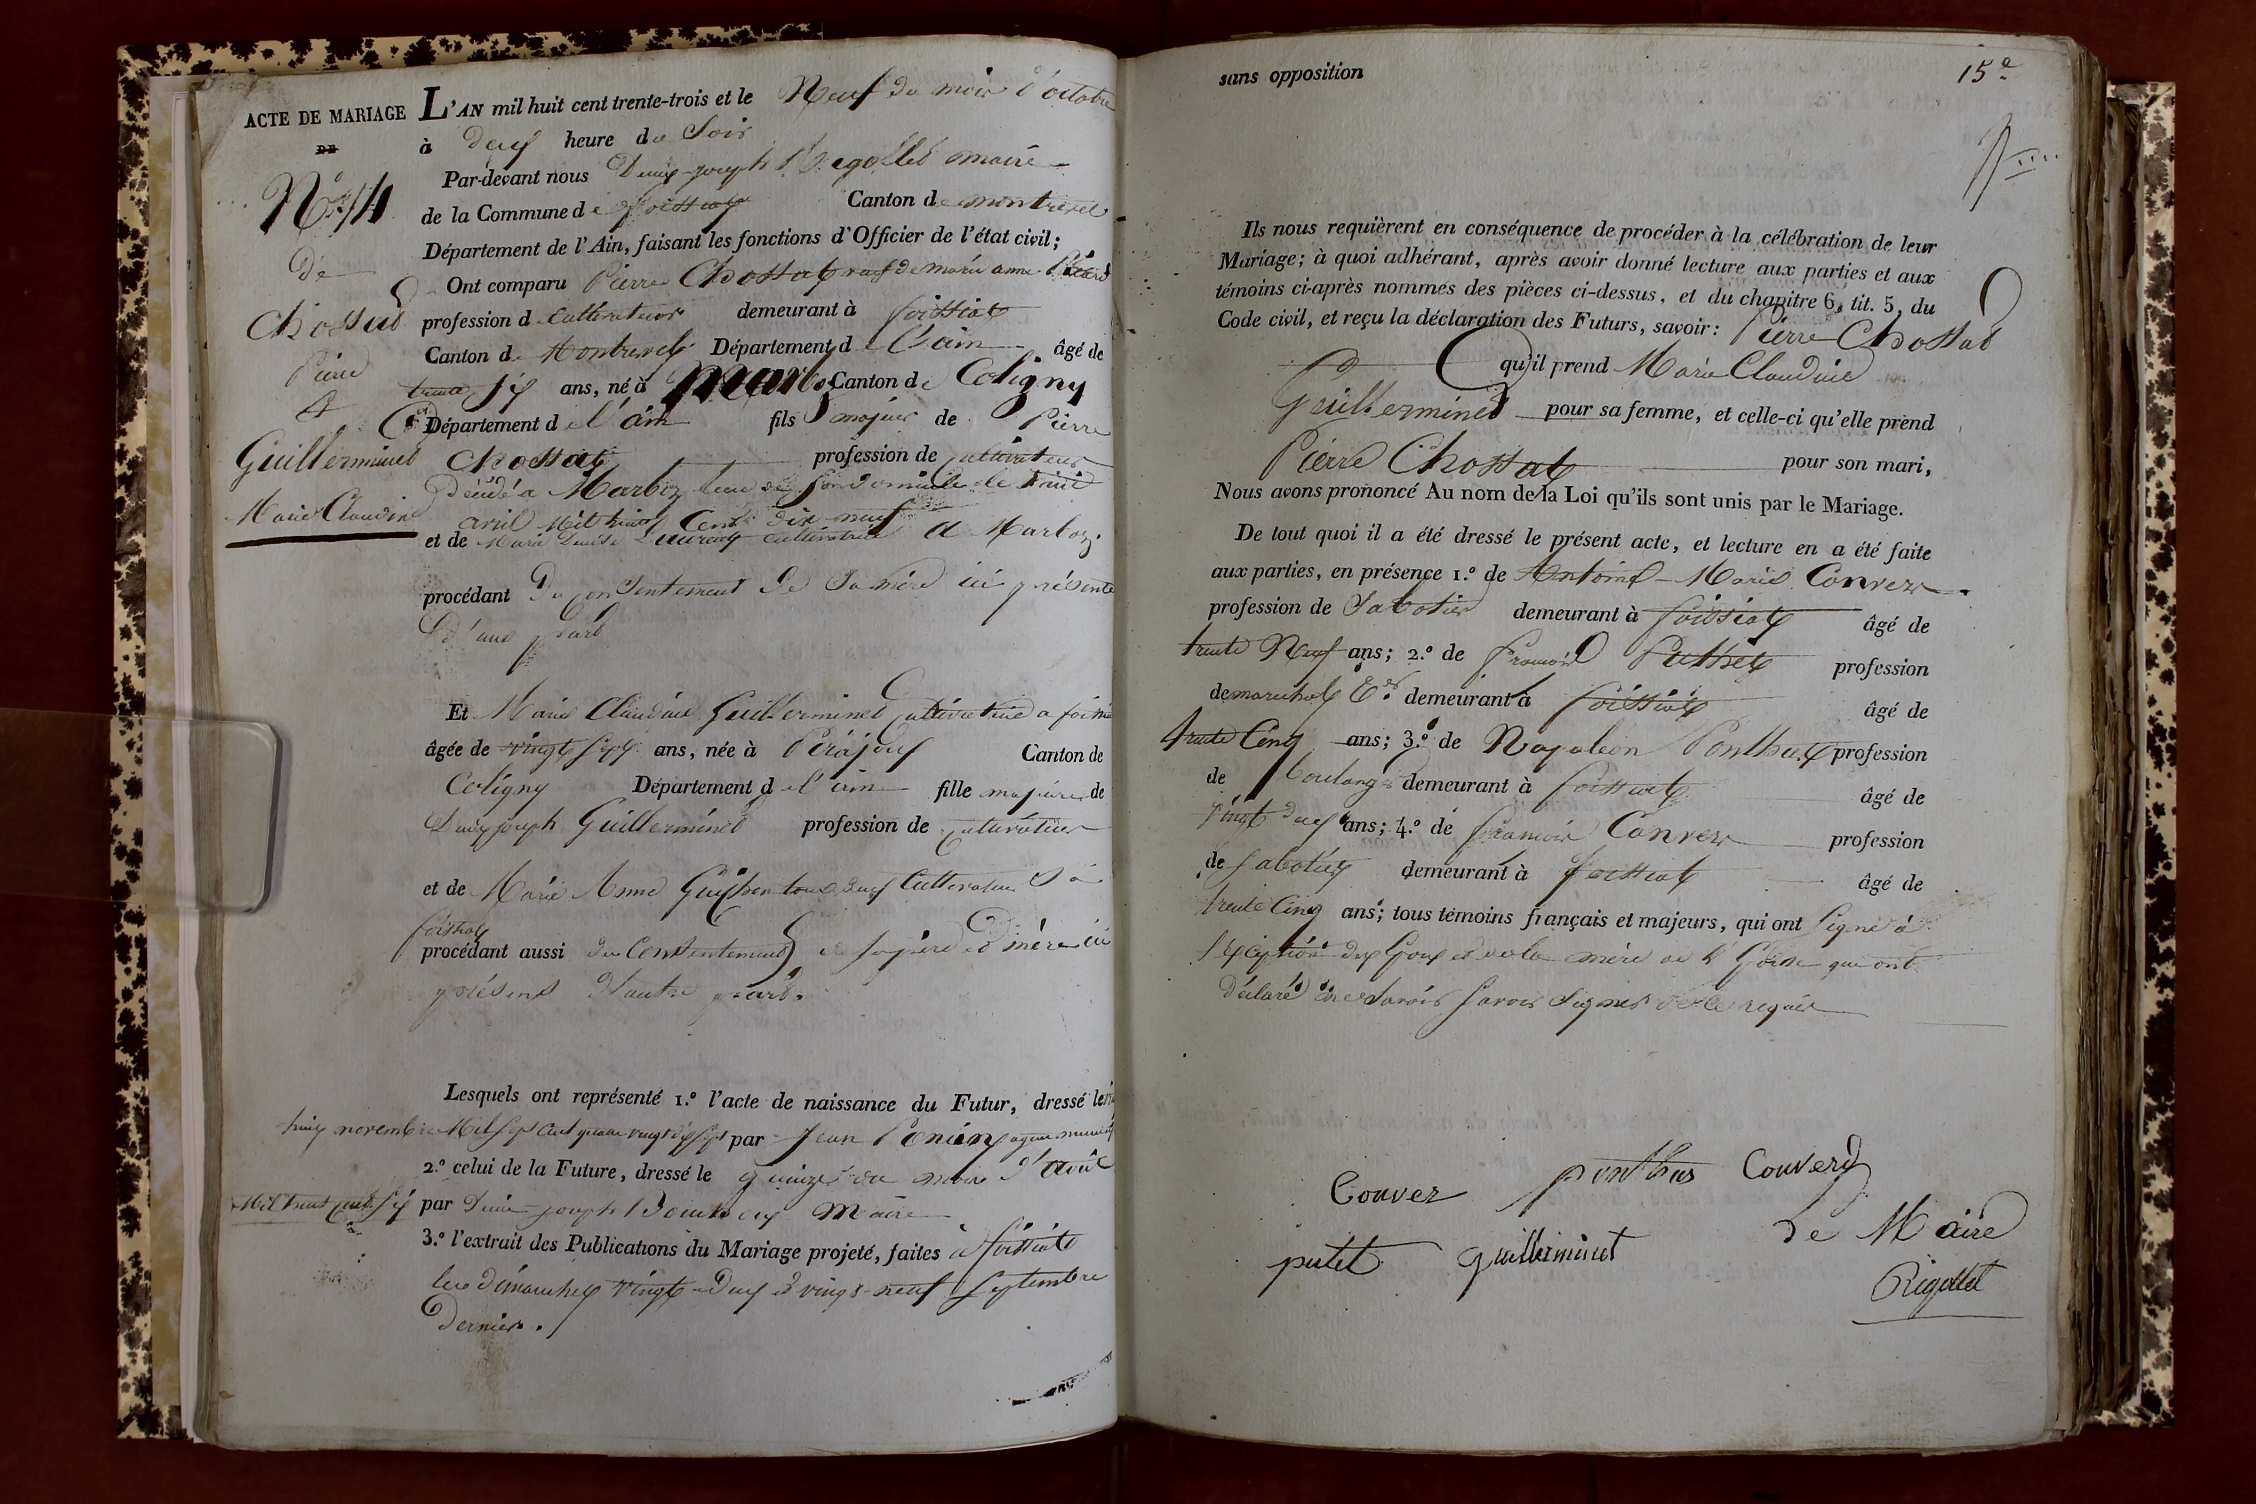 ACTE DE MARIAGE
DE
N.º 14
de
Chossat
Pierre
&
Guillerminet
Marie Claudine
L'AN mil huit cent trente-trois et le Neuf du mois d'octobre
à deux heure du Soir
Par-devant nous Denis-joseph Rigollet maire
de la Commune de foissiat Canton de montrevel
Département de l'Ain, faisant les fonctions d'Officier de l'état civil;
Ont comparu Pierre Chossat veuf de marie anne
profession d cultivateur demeurant à foissiat
Canton de Montrevel Département d l'ain âgé de
trente six ans, né à Marboz Canton de Coligny
Département de l'ain fils majeur de Pierre
Chossat profession de cultivateur
décédé a Marboz lieu de son domicile le
avril Mil huit Cent dix neuf
et de Marie Denise cultivatrice a Marboz.
procédant du consentement de Sa mère ici présente
d'une part
Et Marie Claudine Guillerminet cultivatrice a foissiat
âgée de vingt sept ans, née à Pirajoux Canton de
Coligny Département d l'ain fille majeure de
Denis joseph Guillerminet profession de cultivateur
et de Marie Anne tous deux Cultivateurs à
foissiat
procédant aussi du Consentement de Ses père et mère ici
présens d'autre part.
Lesquels ont représenté 1.º l'acte de naissance du Futur, dressé le
huit novembre Mil sept cent quatre vingt dix sept par Jean agent municipal
2.º celui de la Future, dressé le quinze du mois d'Août
Mil huit Cent six par Denis joseph Maire
3.º l'extrait des Publications du Mariage projeté, faites à foissiat
les dimanches vingt-deux et vingt-neuf Septembre
dernier.
sans opposition
15e
Ils nous requièrent en conséquence de procéder à la célébration de leur
Mariage; à quoi adhérant, après avoir donné lecture aux parties et aux
témoins ci-après nommés des pièces ci-dessus, et du chapitre 6, tit. 5, du
Code civil, et reçu la déclaration des Futurs, savoir: Pierre Chossat
qu'il prend Marie Claudine
Guillerminet pour sa femme, et celle-ci qu'elle prend
Pierre Chossat pour son mari,
Nous avons prononcé Au nom de la Loi qu'ils sont unis par le Mariage.
De tout quoi il a été dressé le présent acte, et lecture en a été faite
aux parties, en présence 1.º de Antoine-Marie Convers
profession de Sabotier demeurant à foissiat âgé de
trente Neuf ans; 2.º de francois Puthet profession
de marechal demeurant à foissiat âgé de
trente Cinq ans; 3.º de Napoléon Ponthus profession
de boulanger demeurant à foissiat âgé de
vingt deux ans; 4.º de francois Convers profession
de Sabotier demeurant à foissiat âgé de
trente Cinq ans; tous témoins français et majeurs, qui ont Signé à
l'exception des Epoux et de la mère de l'Epoux qui ont
déclaré ne Savoir Signer de ce requis
Convez ponthus Convers
putet guillerminet Le Maire
Rigollet